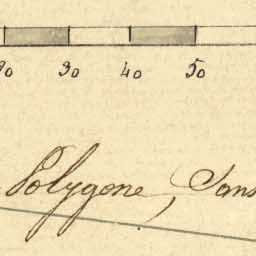 20 30 40 50
Polygone, Sans